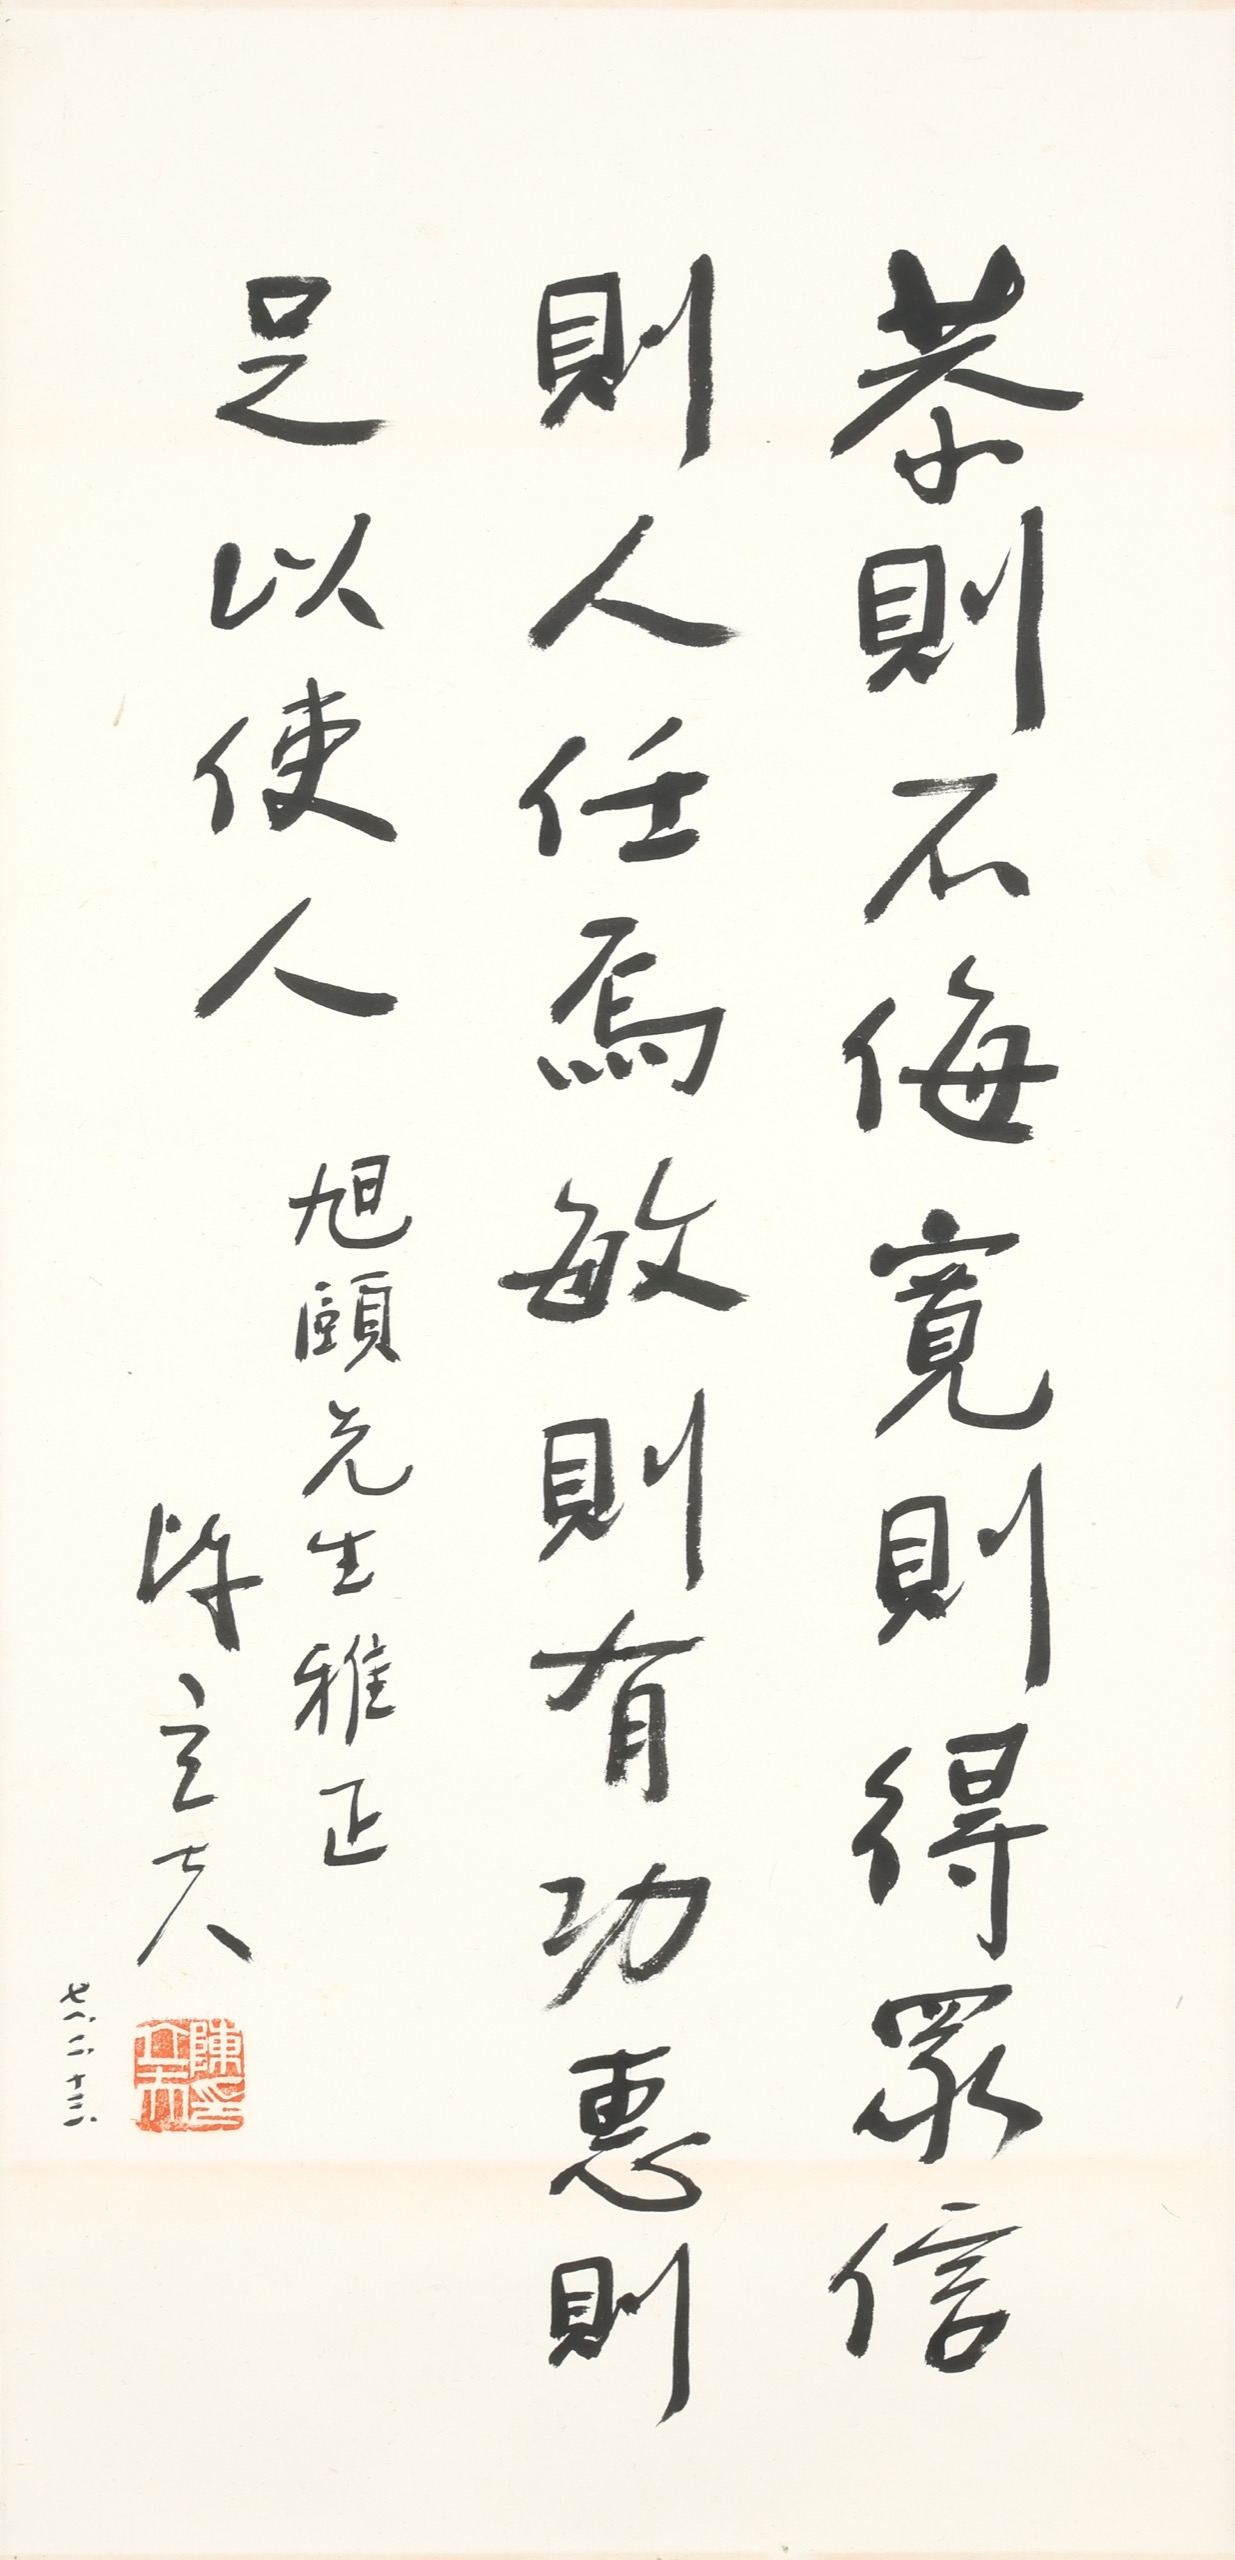 恭則不侮寬則得眾信
則人任焉敏則有功惠則
足以使人
旭頤先生雅正
陳立夫
七八、二、十三、
陳立夫印